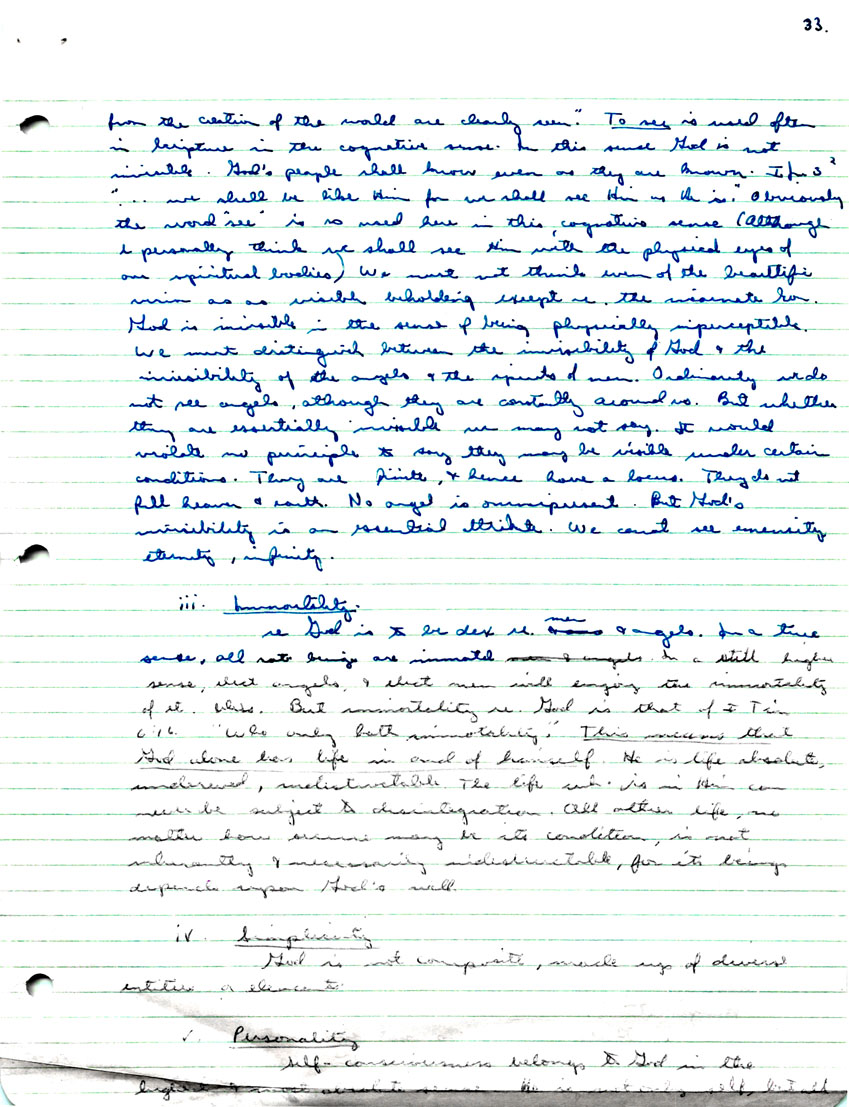 33.
from the creation of the world are clearly seen." To see is used often
in Scripture in the cognitive sense. In this sense God is not
invisible. God's people shall know even as they are known. I Jn 3²
"... we shall be like Him for we shall see Him as He is." Obviously
the word "see" is so used here in this cognative sense (although
I personally think we shall see Him with the physical eyes of
our spiritual bodies) We must not think even of the beautific
vision as a visible beholding except re. the incarnate Son.
God is invisible in the sense of being physically inperceptible.
We must distinguish between the invisibility of God & the
invisibility of the angels & the spirits of men. Ordinarily we do
not see angels, although they are constantly around us. But whether
they are essentially invisible we may not say. It would
violate no principle to say they may be visible under certain
conditions. They are finite, & hence have a locus. They do not
fill heaven & earth. No angel is omnipresent. But God's
invisibility is an essential attribute. We cannot see
eternity, infinity.
iii. Immortality.
re God is to be re. men & angels. In a true
sense, all beings are immortal In a still higher
sense, elect angels, & elect men will enjoy the immortality
of But immortality re. God is that of I Tim
6:16. "Who only hath immortality." This means that
God alone has life in and of himself. He is life absolute,
underived, indestructable The life wh. is in Him can
never be subject to disintegration. All other life, no
matter how secure may be its condition, is not
inherantly & necessarily indestructable, for its being
depends upon God's will.
iv. Simplicity
God is not composite, made up of diverse
entities or elements.
v. Personality
Self-consciousness belongs to God in the
highest & most absolute sense. He is not only self, but all